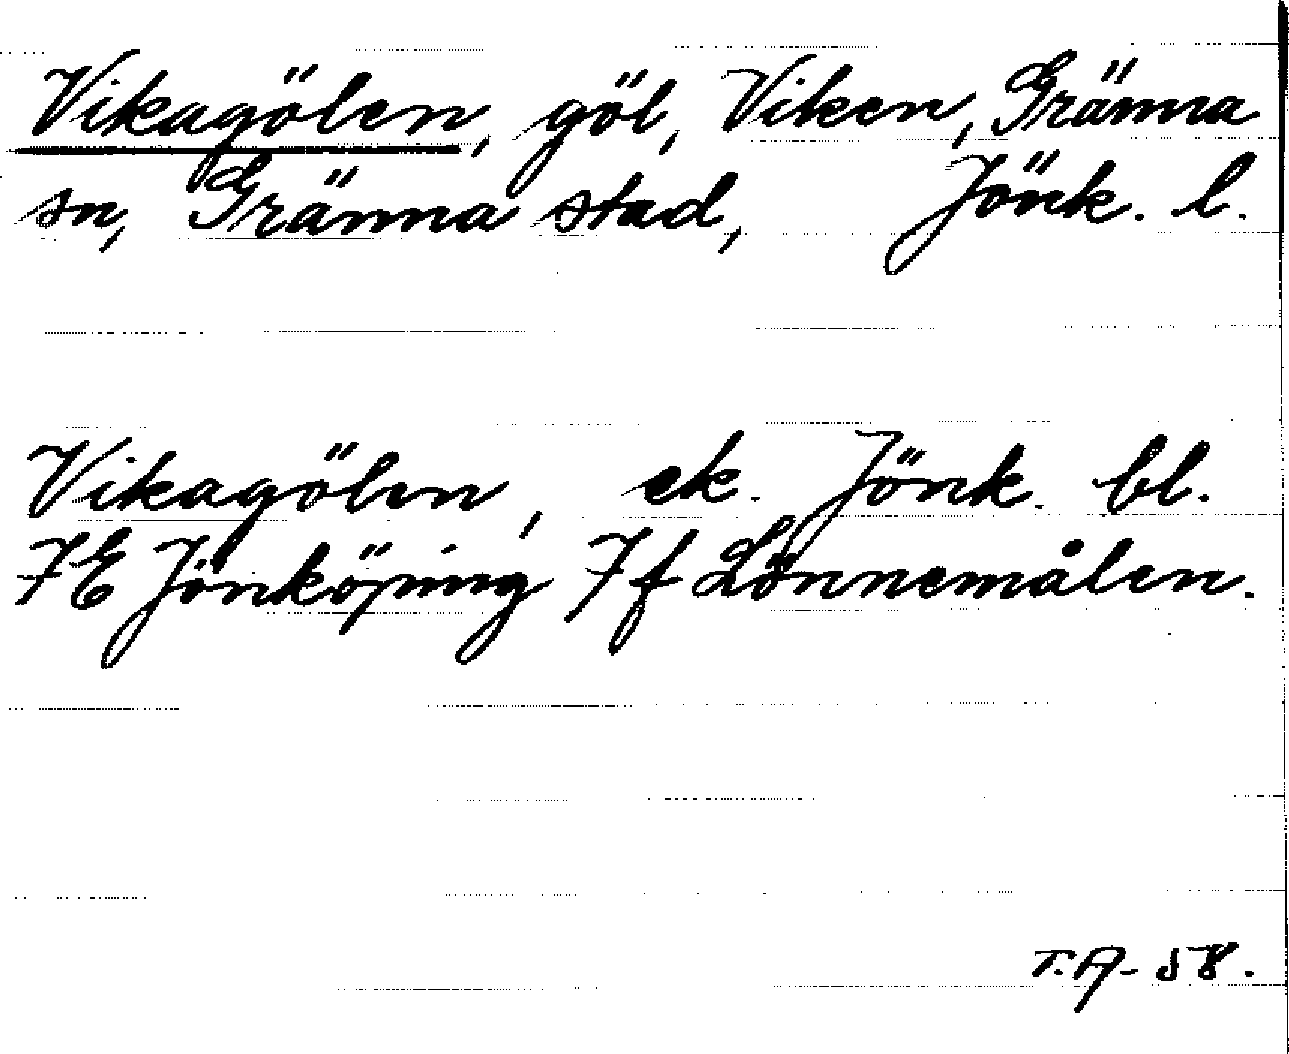 Vikagölen, göl, Viken, Gränna
sn, Gränna stad, Jönk. l.
Vikagölen, ek. Jönk. bl.
7E Jönköping 7f Lönnemålen.
T.A- 58.